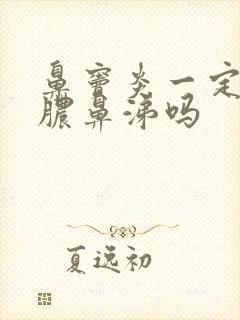 鼻窦炎一定
脓鼻涕吗
夏逸初